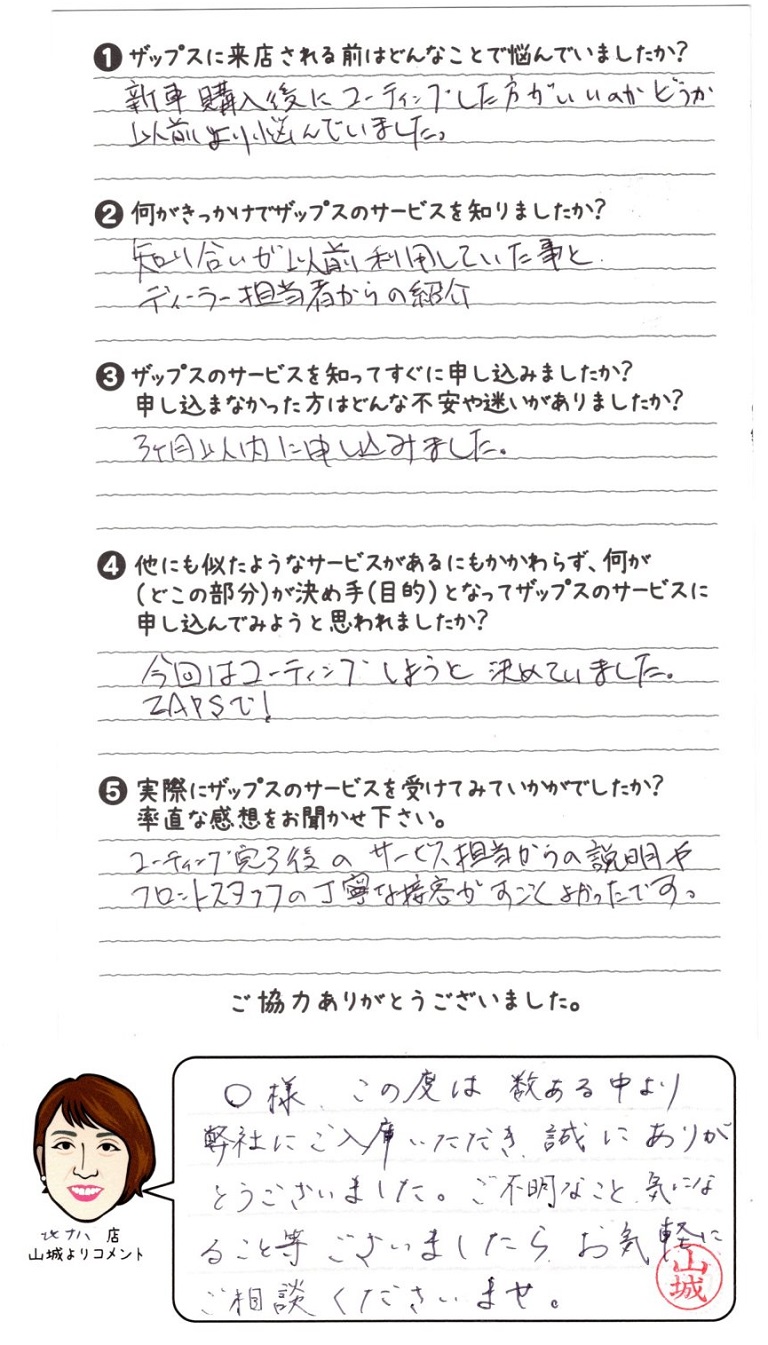 ❶ ザップスに来店される前はどんなことで悩んでいましたか?
新車購入後にコーティングした方がいいのかどうか
以前より悩んでいました。
❷ 何がきっかけでザップスのサービスを知りましたか?
知り合いが以前利用していた事と
ディーラー担当者からの紹介
❸ ザップスのサービスを知ってすぐに申し込みましたか?
申し込まなかった方はどんな不安や迷いがありましたか?
3ヶ月以内に申し込みました。
❹ 他にも似たようなサービスがあるにもかかわらず、何が
(どこの部分)が決め手(目的)となってザップスのサービスに
申し込んでみようと思われましたか?
今回はコーティングしようと決めていました。
ZAPSで!
❺ 実際にザップスのサービスを受けてみていかがでしたか?
率直な感想をお聞かせ下さい。
コーティング完了後のサービス担当からの説明や
フロントスタッフの丁寧な接客がすごくよかったです。
ご協力ありがとうございました。
〇様、この度は数ある中より
弊社にご入庫いただき、誠にありが
とうございました。ご不明なこと、気にな
ること等ございましたら、お気軽に
ご相談くださいませ。
山城
店
山城よりコメント